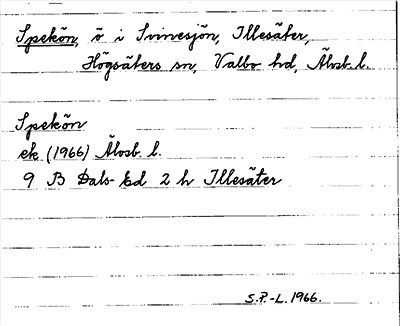 Spekön, ö i Svinesjön, Illesäter,
Högsäters sn, Valbo hd, Älvsb. l.
Spekön
ek (1966) Älvsb l.
9 B Dals-Ed 2 h Illesäter
S.P.-L. 1966.